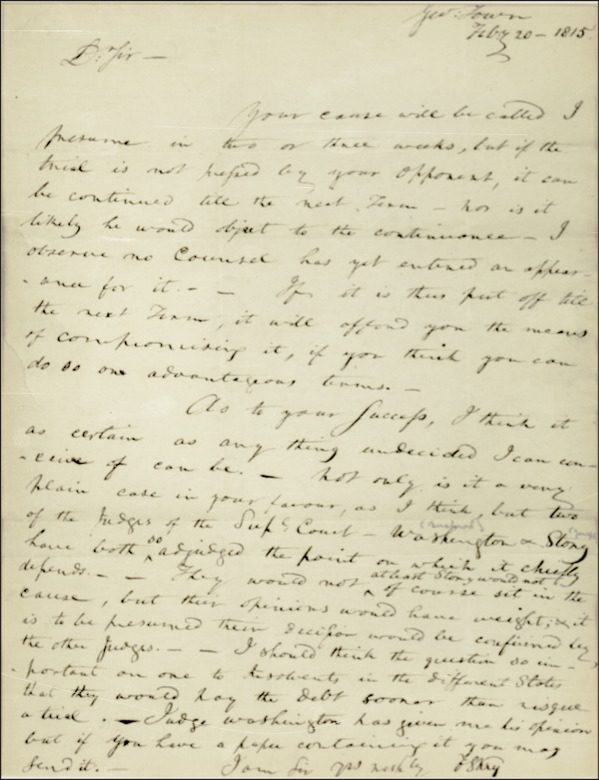 Geo: Town
Feby 20 - 1815.
Dr. Sir -
Your cause will be called I
presume in two or three weeks, but if the
trial is not pressed by your Opponent, it can
be continued till the next Term - nor is it
likely he would object to the continuance - I
observe no Counsel has yet entered an appear-
-ance for it. - - If it is thus put off till
the next Term, it will afford you the means
of compromising it, if you think you can
do so on advantageous terms. -
As to your Success, I think it
as certain as any thing undecided I can con-
-ceive of can be. - Not only is it a very
plain case in your favour, as I think, but two
of the Judges of the Sup. Court - Washington & Story
have both so adjudged the point on which it chiefly
depends. - - They would not of course sit in the
at least Story would not
cause, but their opinions would have weight; & it
is to be presumed their decision would be confirmed by
the other Judges. - - I should think the question so im-
-portant an one to Insolvents in the different States
that they would pay the debt sooner than risque
a trial. - Judge Washington has given me his opinion
but if you have a paper containing it you may
send it. - I am Sir yrs